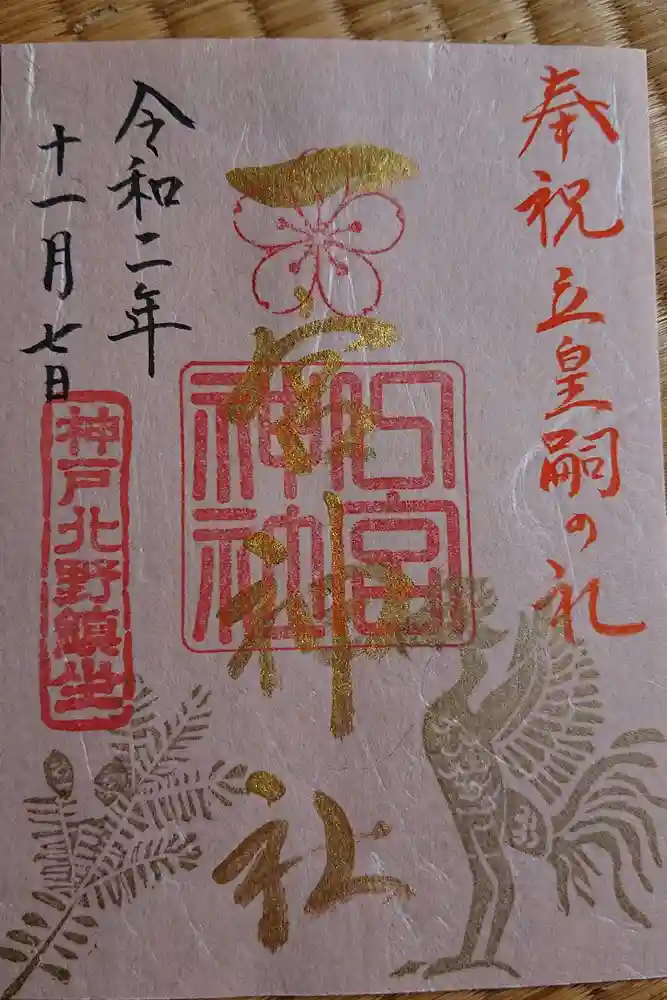 奉祝立皇嗣の礼
一宮神社
一宮
神社
令和二年
十一月七日
神戸北野鎮坐